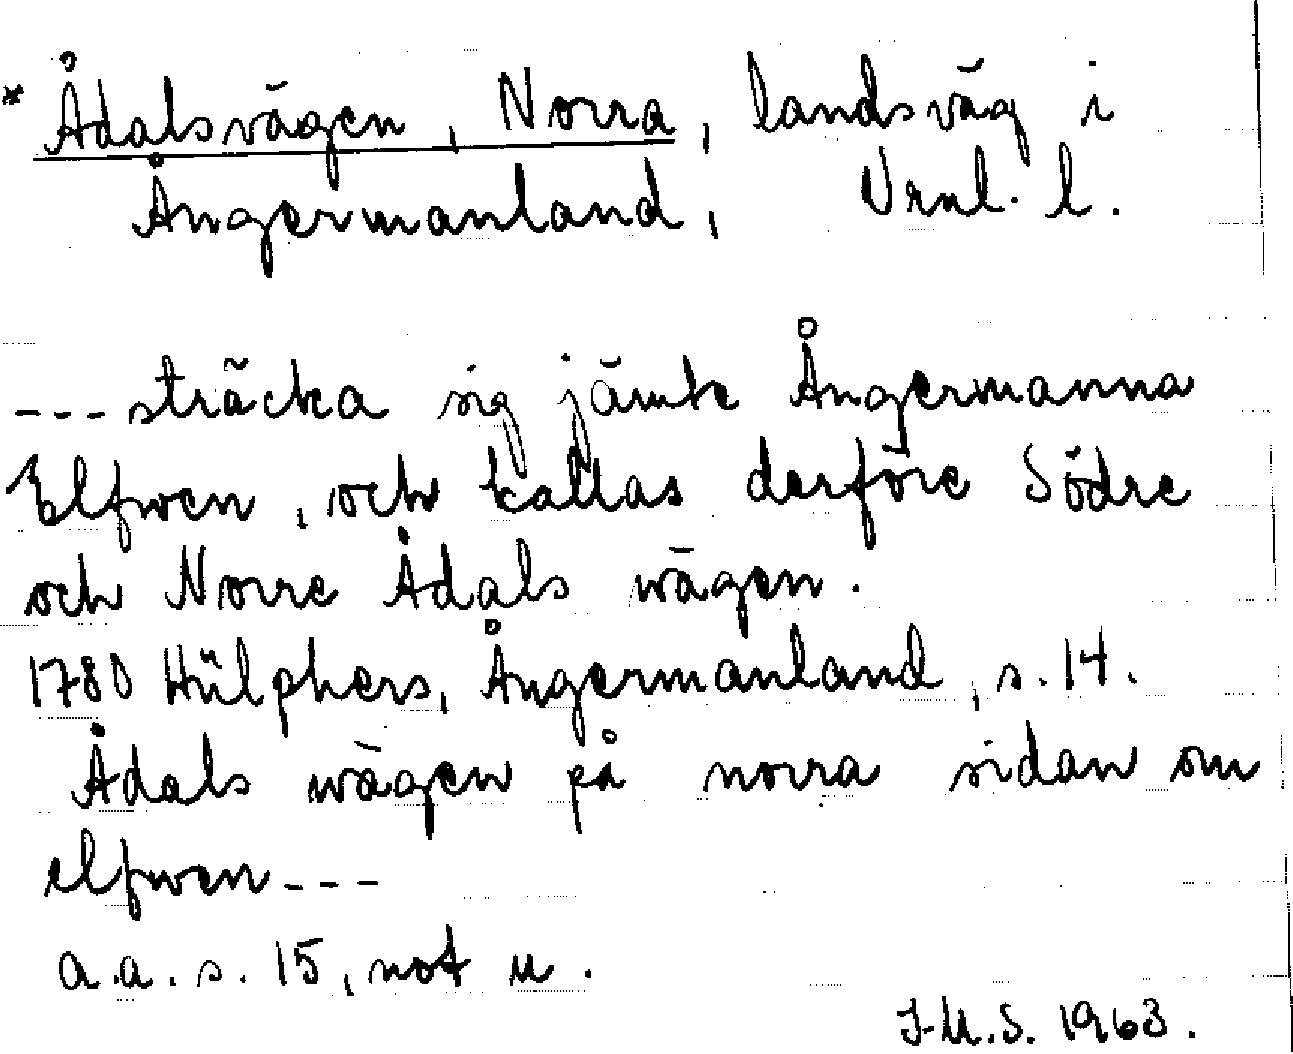 * Ådalsvägen, Norra, landsväg i
Ångermanland, Vrnl. l.
--- sträcka sig jämte Ångermanna
Elfwen, och kallas derföre Södre
och Norre Ådals wägen.
1780 Hülphers, Ångermanland, s. 14.
Ådals wägen på norra sidan om
elfwen ---
a.a. s. 15, not u.
I-M.S. 1963.